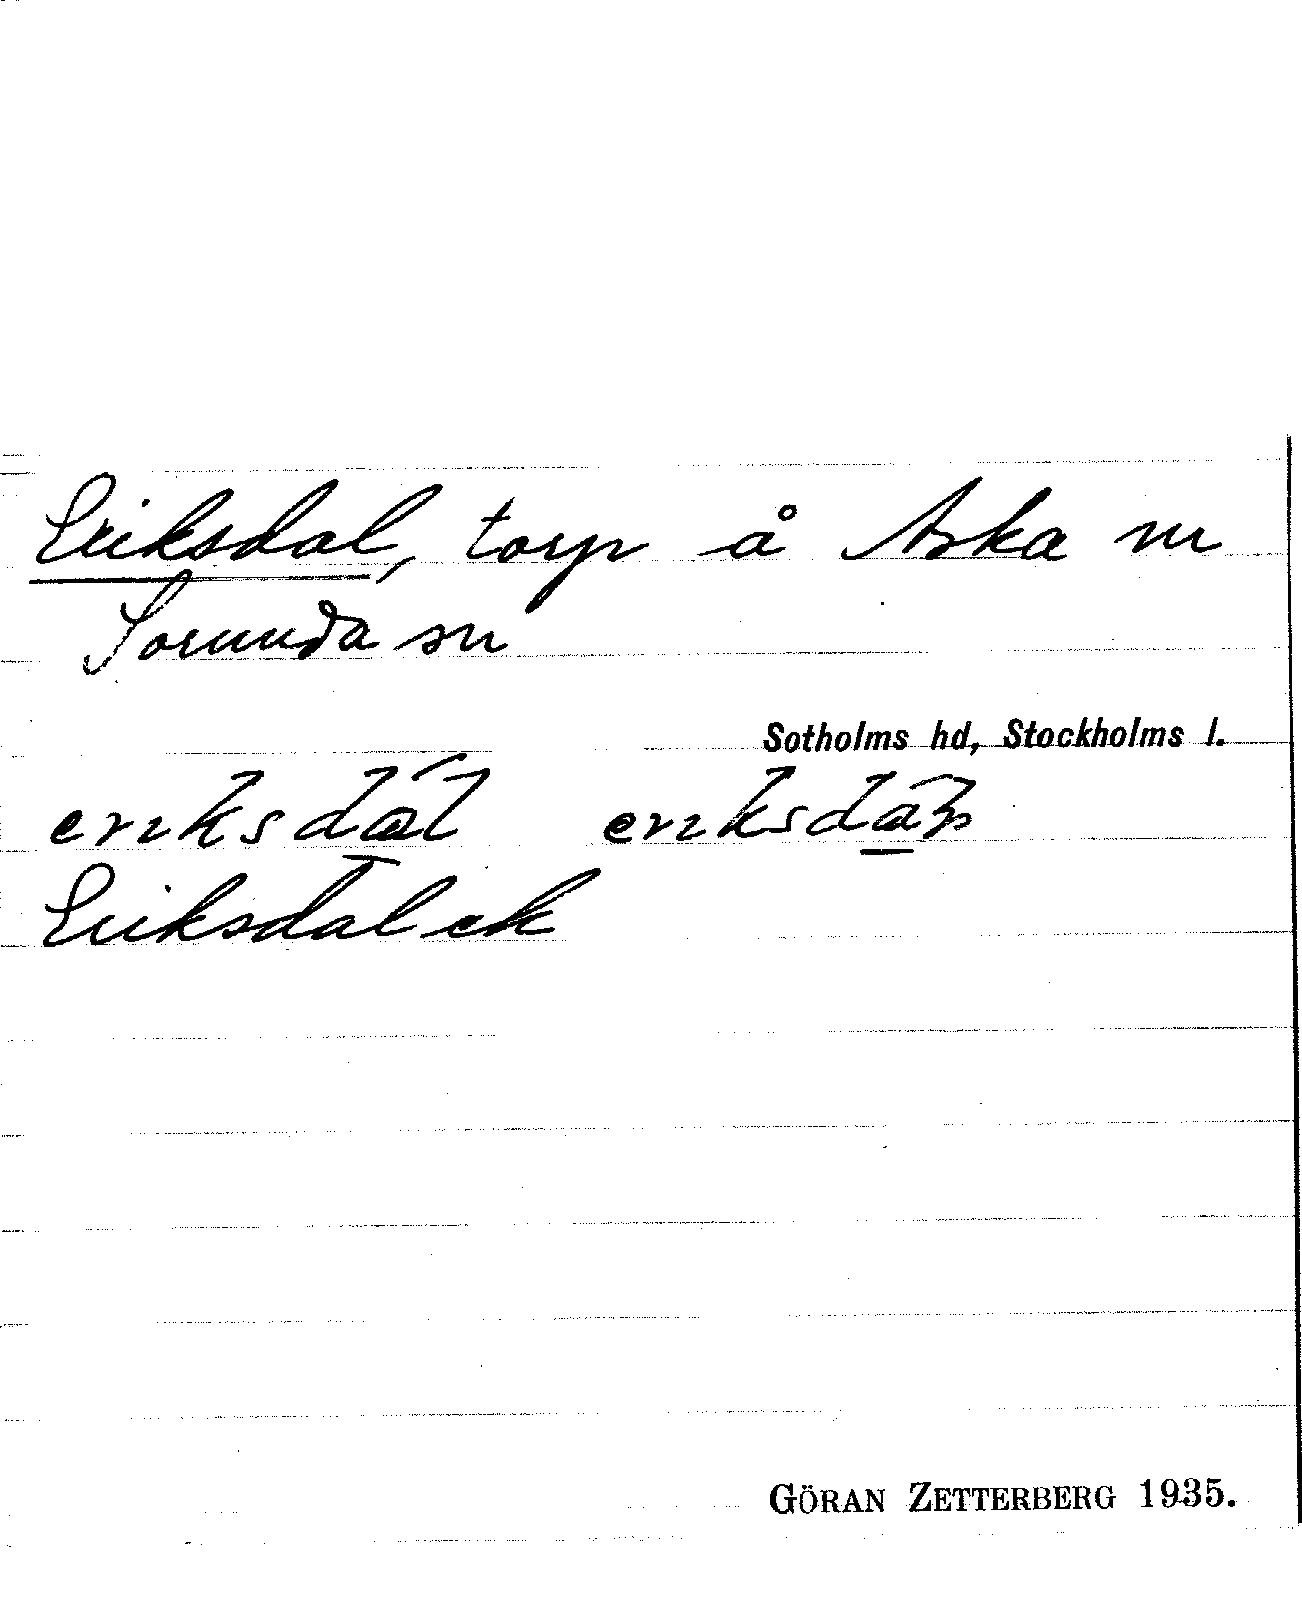 Eriksdal, torp å Arka nr
Sorunda sn
Sotholms hd, Stockholms l.
erıksdál erıksdán
Eriksdal ek
GÖRAN ZETTERBERG 1935.